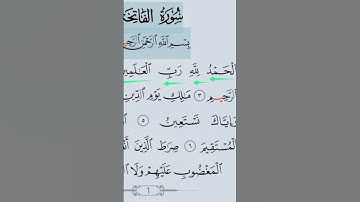 سُورَةُ الفَاتِحَة
بِسْمِ اللَّهِ الرَّحْمَٰنِ
الْحَمْدُ لِلَّهِ رَبِّ الْعَالَمِين
الرَّحِيمِ ٣ مَالِكِ يَوْمِ الدِّين
وَإِيَّاكَ نَسْتَعِينُ ٥
الْمُسْتَقِيمَ ٦ صِرَاطَ الَّذِينَ
الْمَغْضُوبِ عَلَيْهِمْ وَلَا
١